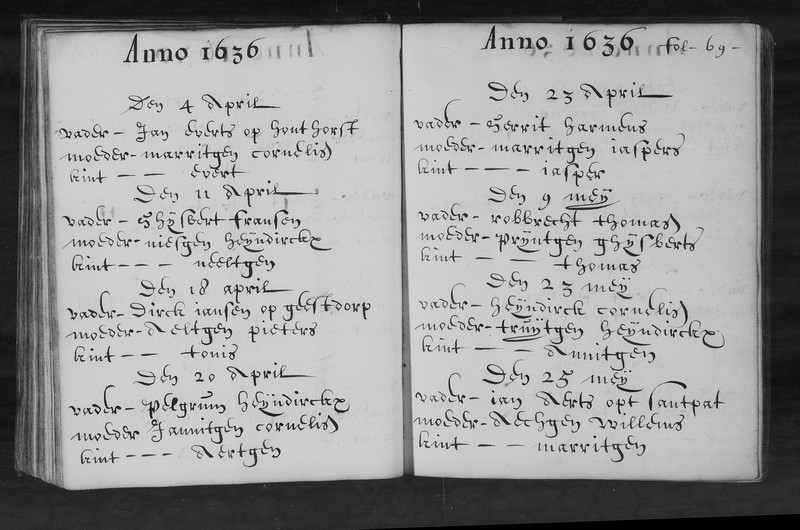 Anno 1636
Den 4 April
vader - Jan everts op hont horst
moeder - marritgen cornelis
kint - - evert
Den 11 April
vader - Ghysbert fransen
moeder - niesgen heyndirckx
kint - - - neeltgen
Den 18 april
vader - Dirck iansen op geestdorp
moeder - Aeltgen pieters
kint - - tonis
Den 20 April
vader - Pelgrum heyndirckx
moeder Jannitgen cornelis
kint - - - Aertgen
Anno 1636 fol - 69 -
Den 23 April
vader - Gerrit harmens
moeder - marritgen iaspers
kint - - - iasper
Den 9 mey
vader - robbrecht thomas
moeder - Pryntgen ghysberts
kint - - - thomas
Den 23 mey
vader - heyndirck cornelis
moeder - truytgen heyndirckx
kint - - - Annitgen
Den 25 mey
vader - ian Aerts opt santpat
moeder - Aechgen willems
kint - - - marritgen